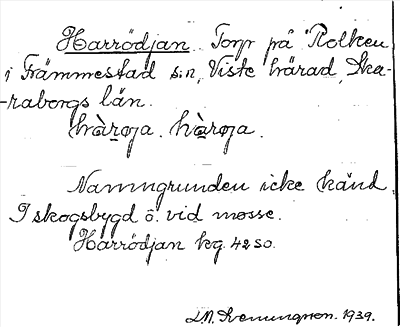 Harrödjan. Torp på Rolken
i Främmestad s:n, Viste härad, Ska-
-raborgs län.
hàrøja. hàrøja.
Namngrunden icke känd.
I skogsbygd ö. vid mosse.
Harrödjan kg. 4250.
1939.